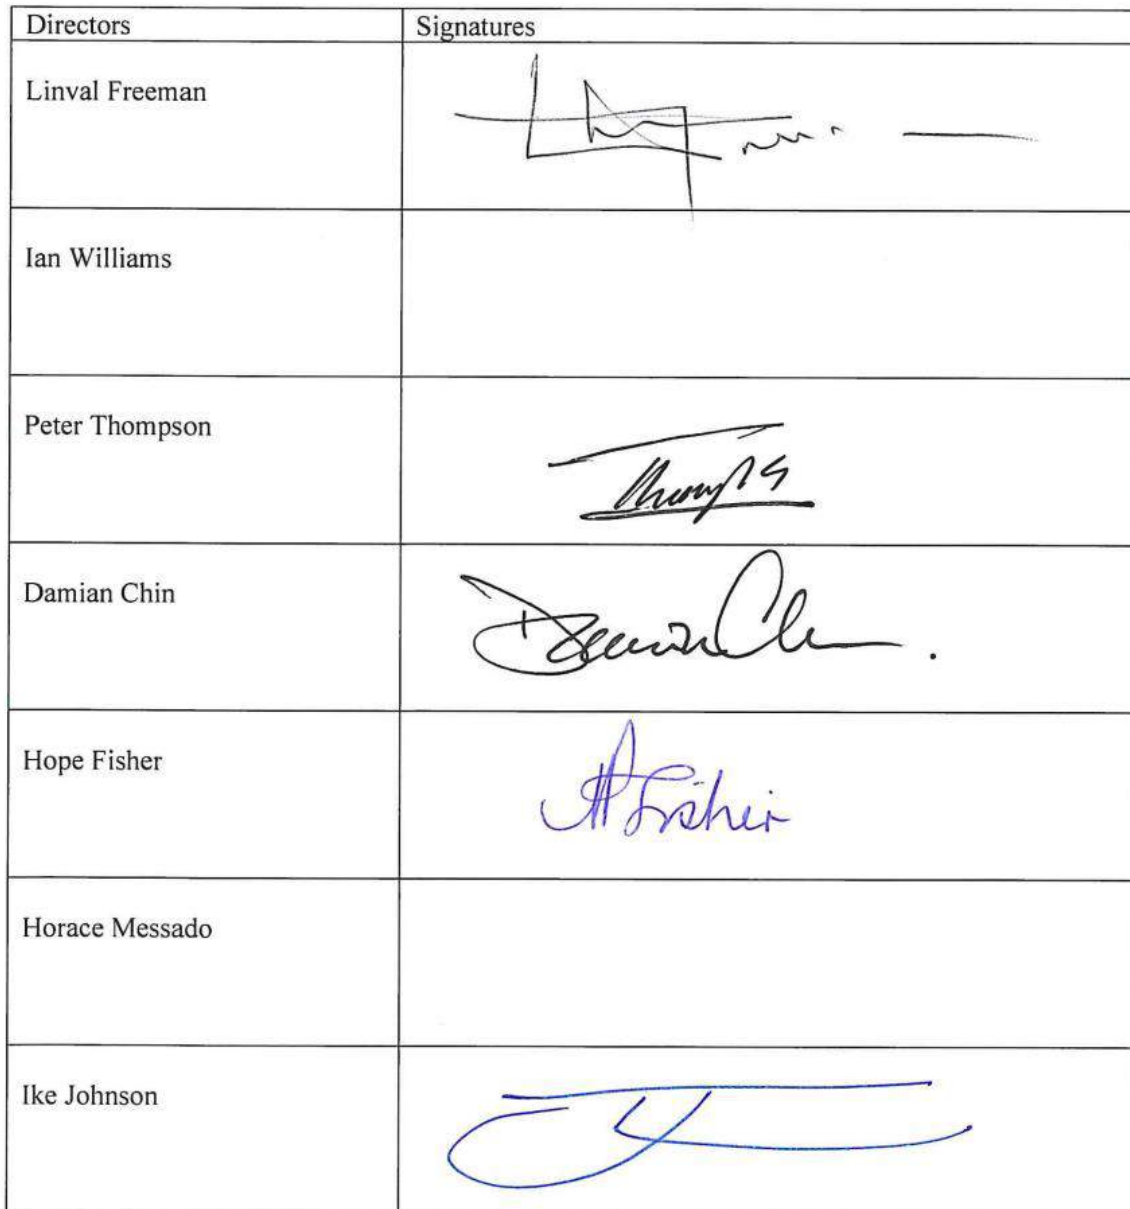 Directors Signatures
Linval Freeman
Ian Williams
Peter Thompson
Damian Chin Damian Ch
Hope Fisher H Fisher
Horace Messado
Ike Johnson